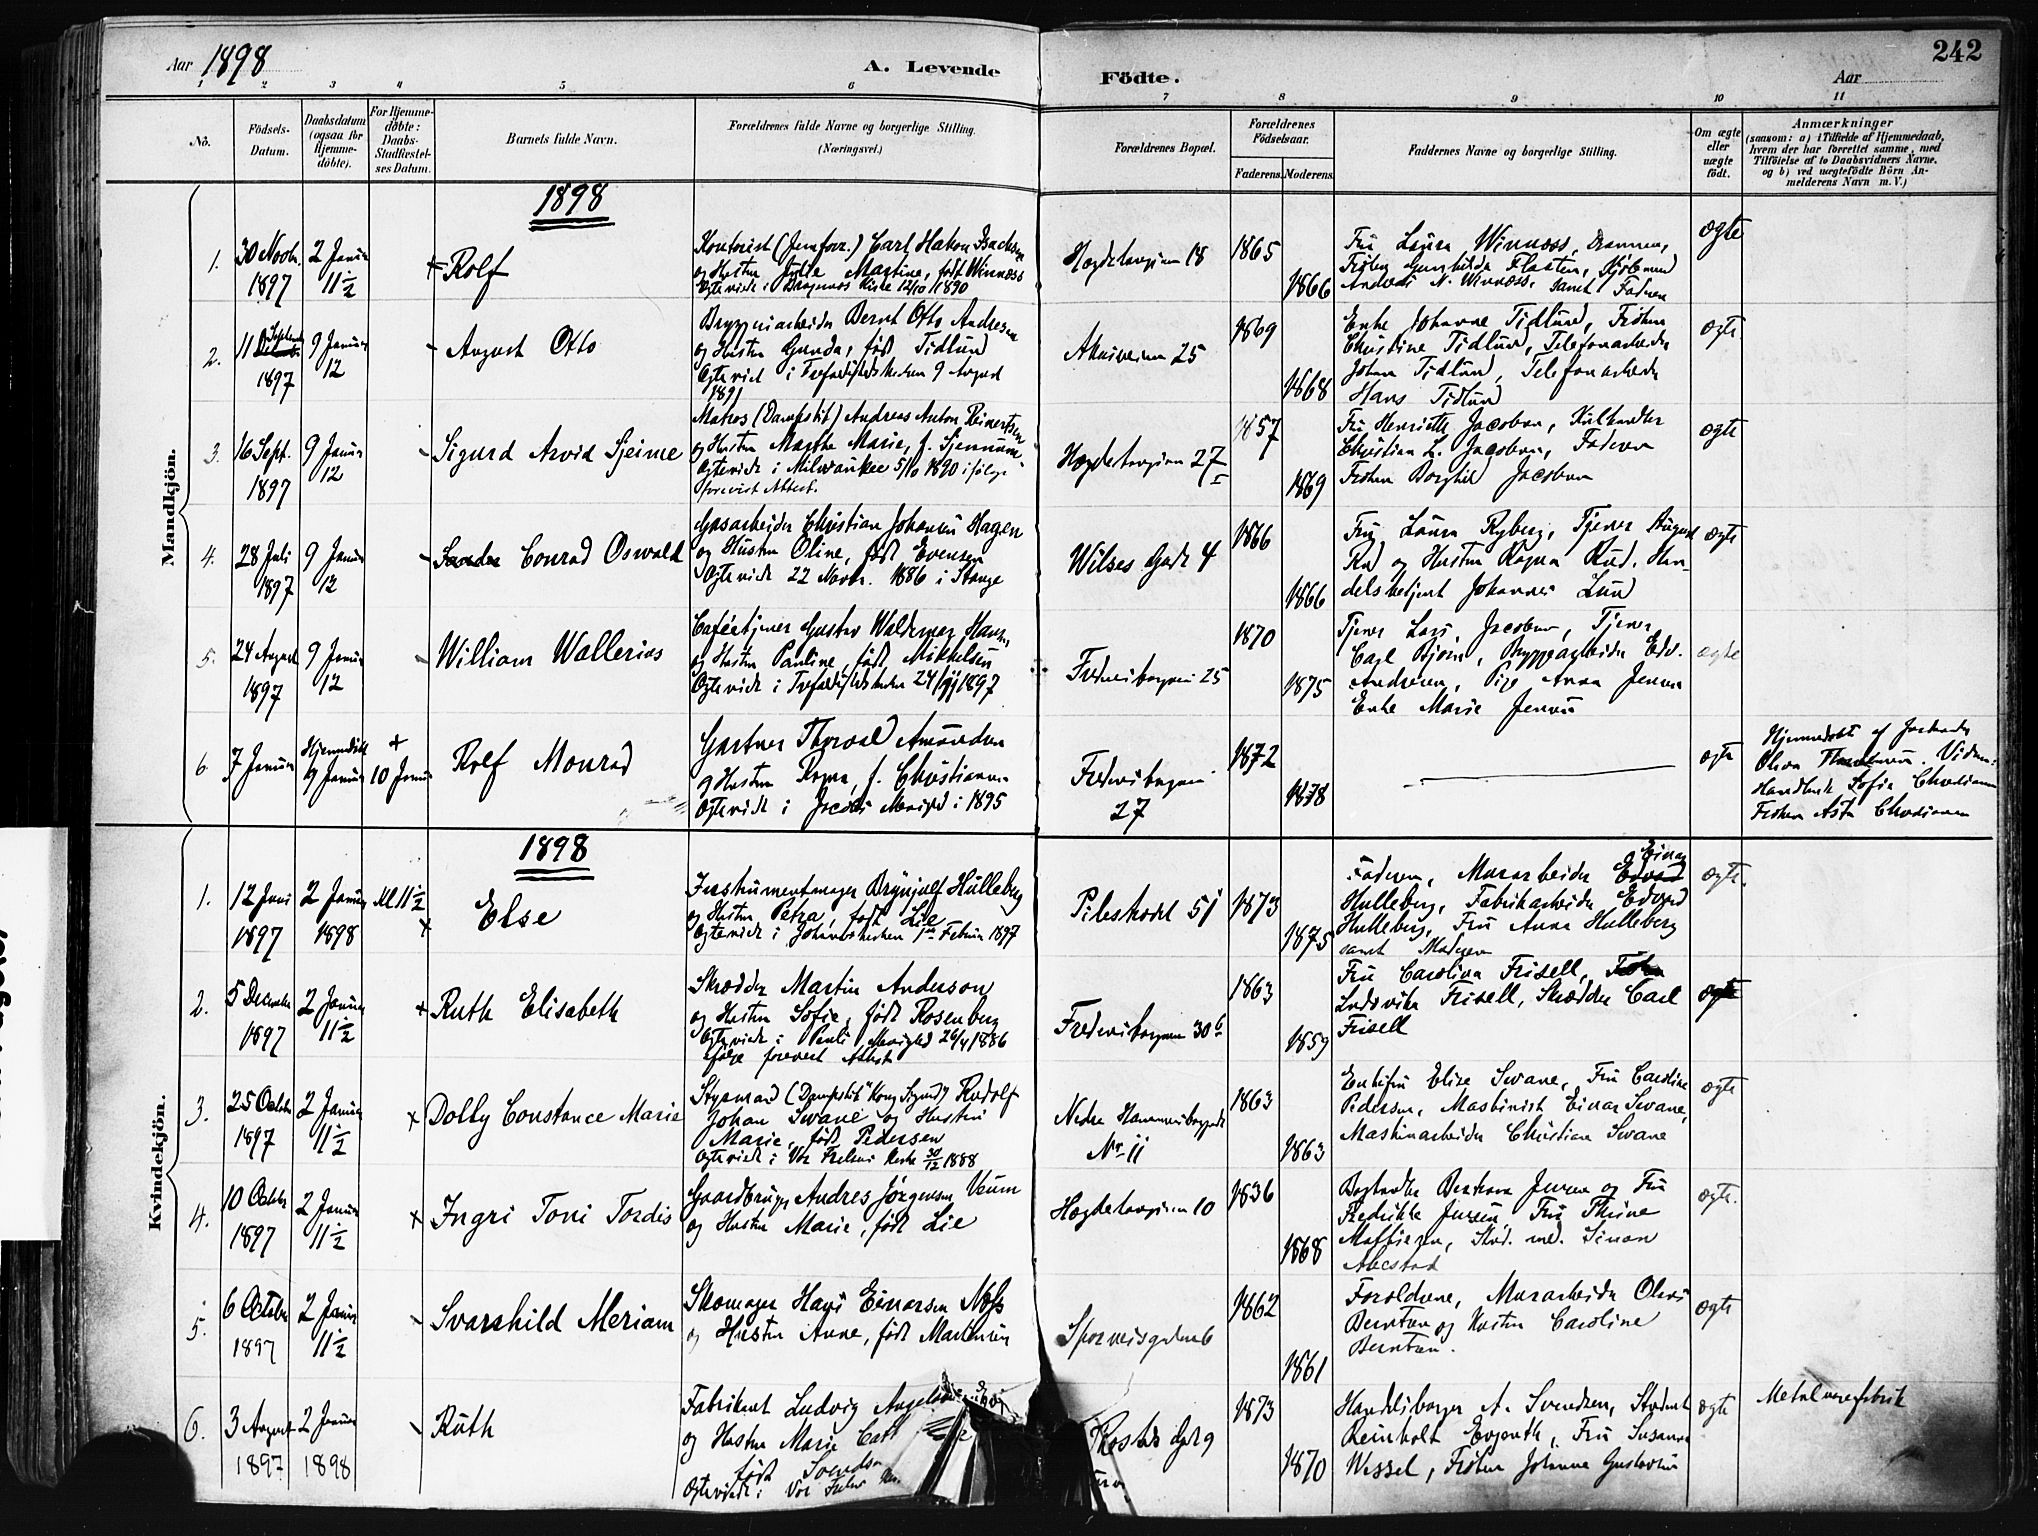 Aar 1898
A. Levende
Födte.
242
Aar
1 2 3 4 5 6 7 8 9 10 11
No.
Födsels-Datum.
Daabsdatum (ogsaa for Hjemme-döbte).
For Hjemme-döbte: Daabs-Stadfæstel-ses Datum.
Barnets fulde Navn.
Forældrenes fulde Navne og borgerlige Stilling.
(Næringsvei.)
Forældrenes Bopæl.
Forældrenes Födselsaar.
Faderens. Moderens.
Faddernes Navne og borgerlige Stilling.
Om ægte eller uægte födt.
Anmærkninger
(saasom: a) i Tilfælde af Hjemmedaab,
hvem der har forrettet samme, med
Tilföielse af to Daabsvidners Navne,
og b) ved uægtefödte Börn An-
melderens Navn m. V.)
Mandkjön.
1898
1. 30 Novbr. 1897
2 Januar 11½
Rolf
Kontorist (Jernforr.) Carl Hakon Isachsen
og Hustru Julie Martine, født Winnæss
Ægteviede i Bragernes Kirke 12/10 1890
Hægdehaugsveien 18
1865
1866
Fru Laura Winnæss, Drammen,
Frøken Gunhilda Flaaten, Kjøbmand
Andreas N. Winnæss, samt Faderen
ægte
2. 11 September 1897
9 Januar 12
August Otto
Bryggeriarbeider Bernt Otto Andresen
og Hustru Gunda, født Tidlund
Ægteviet i Trefoldighedskirken 9 August
1891
Akersveien 25
1869
1868
Enke Johanne Tidlund, Frøken
Christine Tidlund, Telefonarbeider
Johan Tidlund, Telefonarbeider
Hans Tidlund
ægte
3. 16 Sept. 1897
9 Januar 12
Sigurd Arvid Sjeime
Matros (Dampskib) Andreas Anton Reinertsen
og Hustru Magthe Marie, f.
Ægteviede i Milwaukee 5/10 1890 ifølge
forevist Attest.
Hægdehaugsveien 27 I
1857
1869
Fru Henriette Jacobsen, Kulhandler
Christian L. Jacobsen, Faderen
Frøken Borghild Jacobsen
ægte
4. 28 Juli 1897
9 Januar 12
Conrad Oswald
Gasarbeider Christian Johansen Hagen
og Hustru Oline, født Evensen
Ægteviede 22 Novbr. 1886 i Stange
Wilses Gade 4
1866
1866
Fru Laura Ryberg, Tjener August
Rud og Hustru Ragna Rud, Han-
delsbetjent Johannes Lund
ægte
5. 24 August 1897
9 Januar 12
William Wallerius
Cafétjener Gustav Waldemar Hansen
og Hustru Pauline, født Mikkelsen
Ægteviede i Trefoldighedskirken 24/ 1897
Fredensborgveien 25
1870
1875
Tjener Lars Jacobsen, Tjener
Carl Bjørn, Bryggearbeider Edv.
Andresen, Pige Anna Jensen
Enke Marie Jensen
ægte
6. 7 Januar
Hjemmedøbt 9 Januar
10 Januar
Rolf Monrad
Gartner Thorvald Amundsen
og Hustru Ragna, f. Christiansen
Ægteviede i Jacobs Menighed i 1895
Fredensborgveien
27
1872
1878
ægte
Hjemmedøbt af Jordmoder
Olava Vidner:
Handlende Sofie Christiansen
Frøken Asta Christiansen
Kvindekjön.
1898
1. 12 Juni 1897
2 Januar 1898
Kl 11½
Else
Instrumentmager Brynjulf Hulleberg
og Hustru Petra, født Lie
Ægteviede i Johanneskirken 1ste Februar 1897
Pilestrædet 51
1873
1875
Faderen, Murarbeider Einar
Hulleberg, Fabrikarbeider Edvard
Hulleberg, Fru Anna Hulleberg
samt Moderen
ægte.
2. 5 December 1897
2 Januar 11½
Ruth Elisabeth
Skrædder Martin Anderson
og Hustru Sofie, født Rosenberg
Ægteviede i Pauli Menighed 26/4 1886
ifølge forevist Attest
Fredensborgveien 30 b
1863
1859
Fru Carolina Frisell,
Ludovika Frisell, Skrædder Carl
Frisell
ægte
3. 25 October 1897
2 Januar 11½
Dolly Constance Marie
Styrmand (Dampskib "Kong Sigurd") Rudolf
Johan Swane og Hustru
Marie, født Pedersen
Ægteviede i Vor Frelsers Kirke 30/12 1888
Nedre Hammersborggade
No 11
1863
1863
Enkefru Elise Swane, Fru Caroline
Pedersen, Maskinist Einar Swane,
Maskinarbeider Christian Swane
ægte
4. 10 October 1897
2 Januar 11½
Ingri Toni Tordis
Gaardbruger Andres Jörgensen Veum
og Hustru Marie, født Lie
Hægdehaugsveien 10
1836
1868
Bogtrykker Jensen og Fru
Fredrikke Jensen, Fru Thrine
Mathiesen, Stud. med. Simon
ægte.
5. 6 October 1897
2 Januar 11½
Svanhild Meriam
Skomager Hans Einarsen Næss
og Hustru Anne, født Martinsen
Sporveisgaden 6
1862
1861
Forældrene, Murarbeider Olaus
Berntsen og Hustru Caroline
Berntsen.
ægte
6. 3 August 1897
2 Januar 1898
Ruth
Fabrikant Ludvig
og Hustru Marie
født Svendsen
Ægteviede i Vor Frelsers
9
1873
1870
Handelsborger A. Svendsen, Student
Reinholt, Fru Susanna
Wessel, Frøken Johanne Gustavsen
ægte
Metalvarefabrik